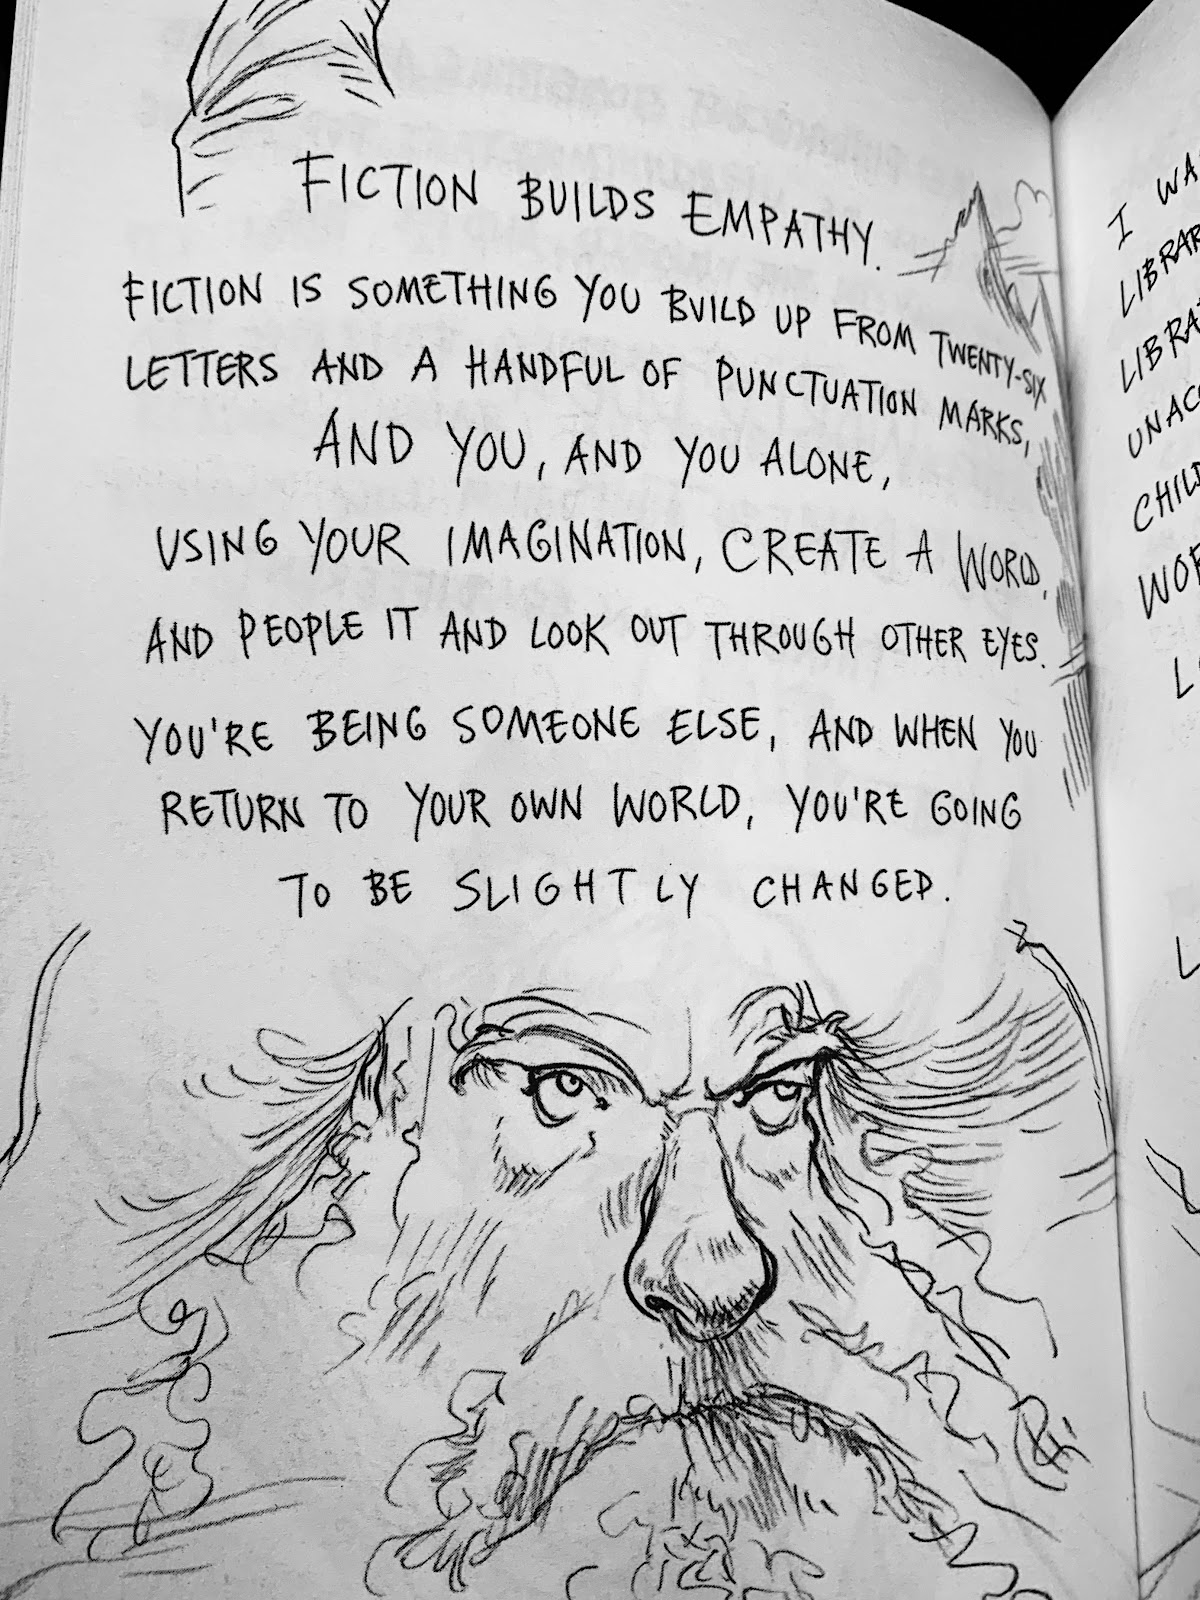 FICTION BUILDS EMPATHY.
FICTION IS SOMETHING YOU BUILD UP FROM TWENTY-SIX
LETTERS AND A HANDFUL OF PUNCTUATION MARKS,
AND YOU, AND YOU ALONE,
USING YOUR IMAGINATION, CREATE A WORLD,
AND PEOPLE IT AND LOOK OUT THROUGH OTHER EYES.
YOU'RE BEING SOMEONE ELSE, AND WHEN YOU
RETURN TO YOUR OWN WORLD, YOU'RE GOING
TO BE SLIGHTLY CHANGED.
I WA
LIBRAR
LIBRA
UNACC
CHILD
WOR
L